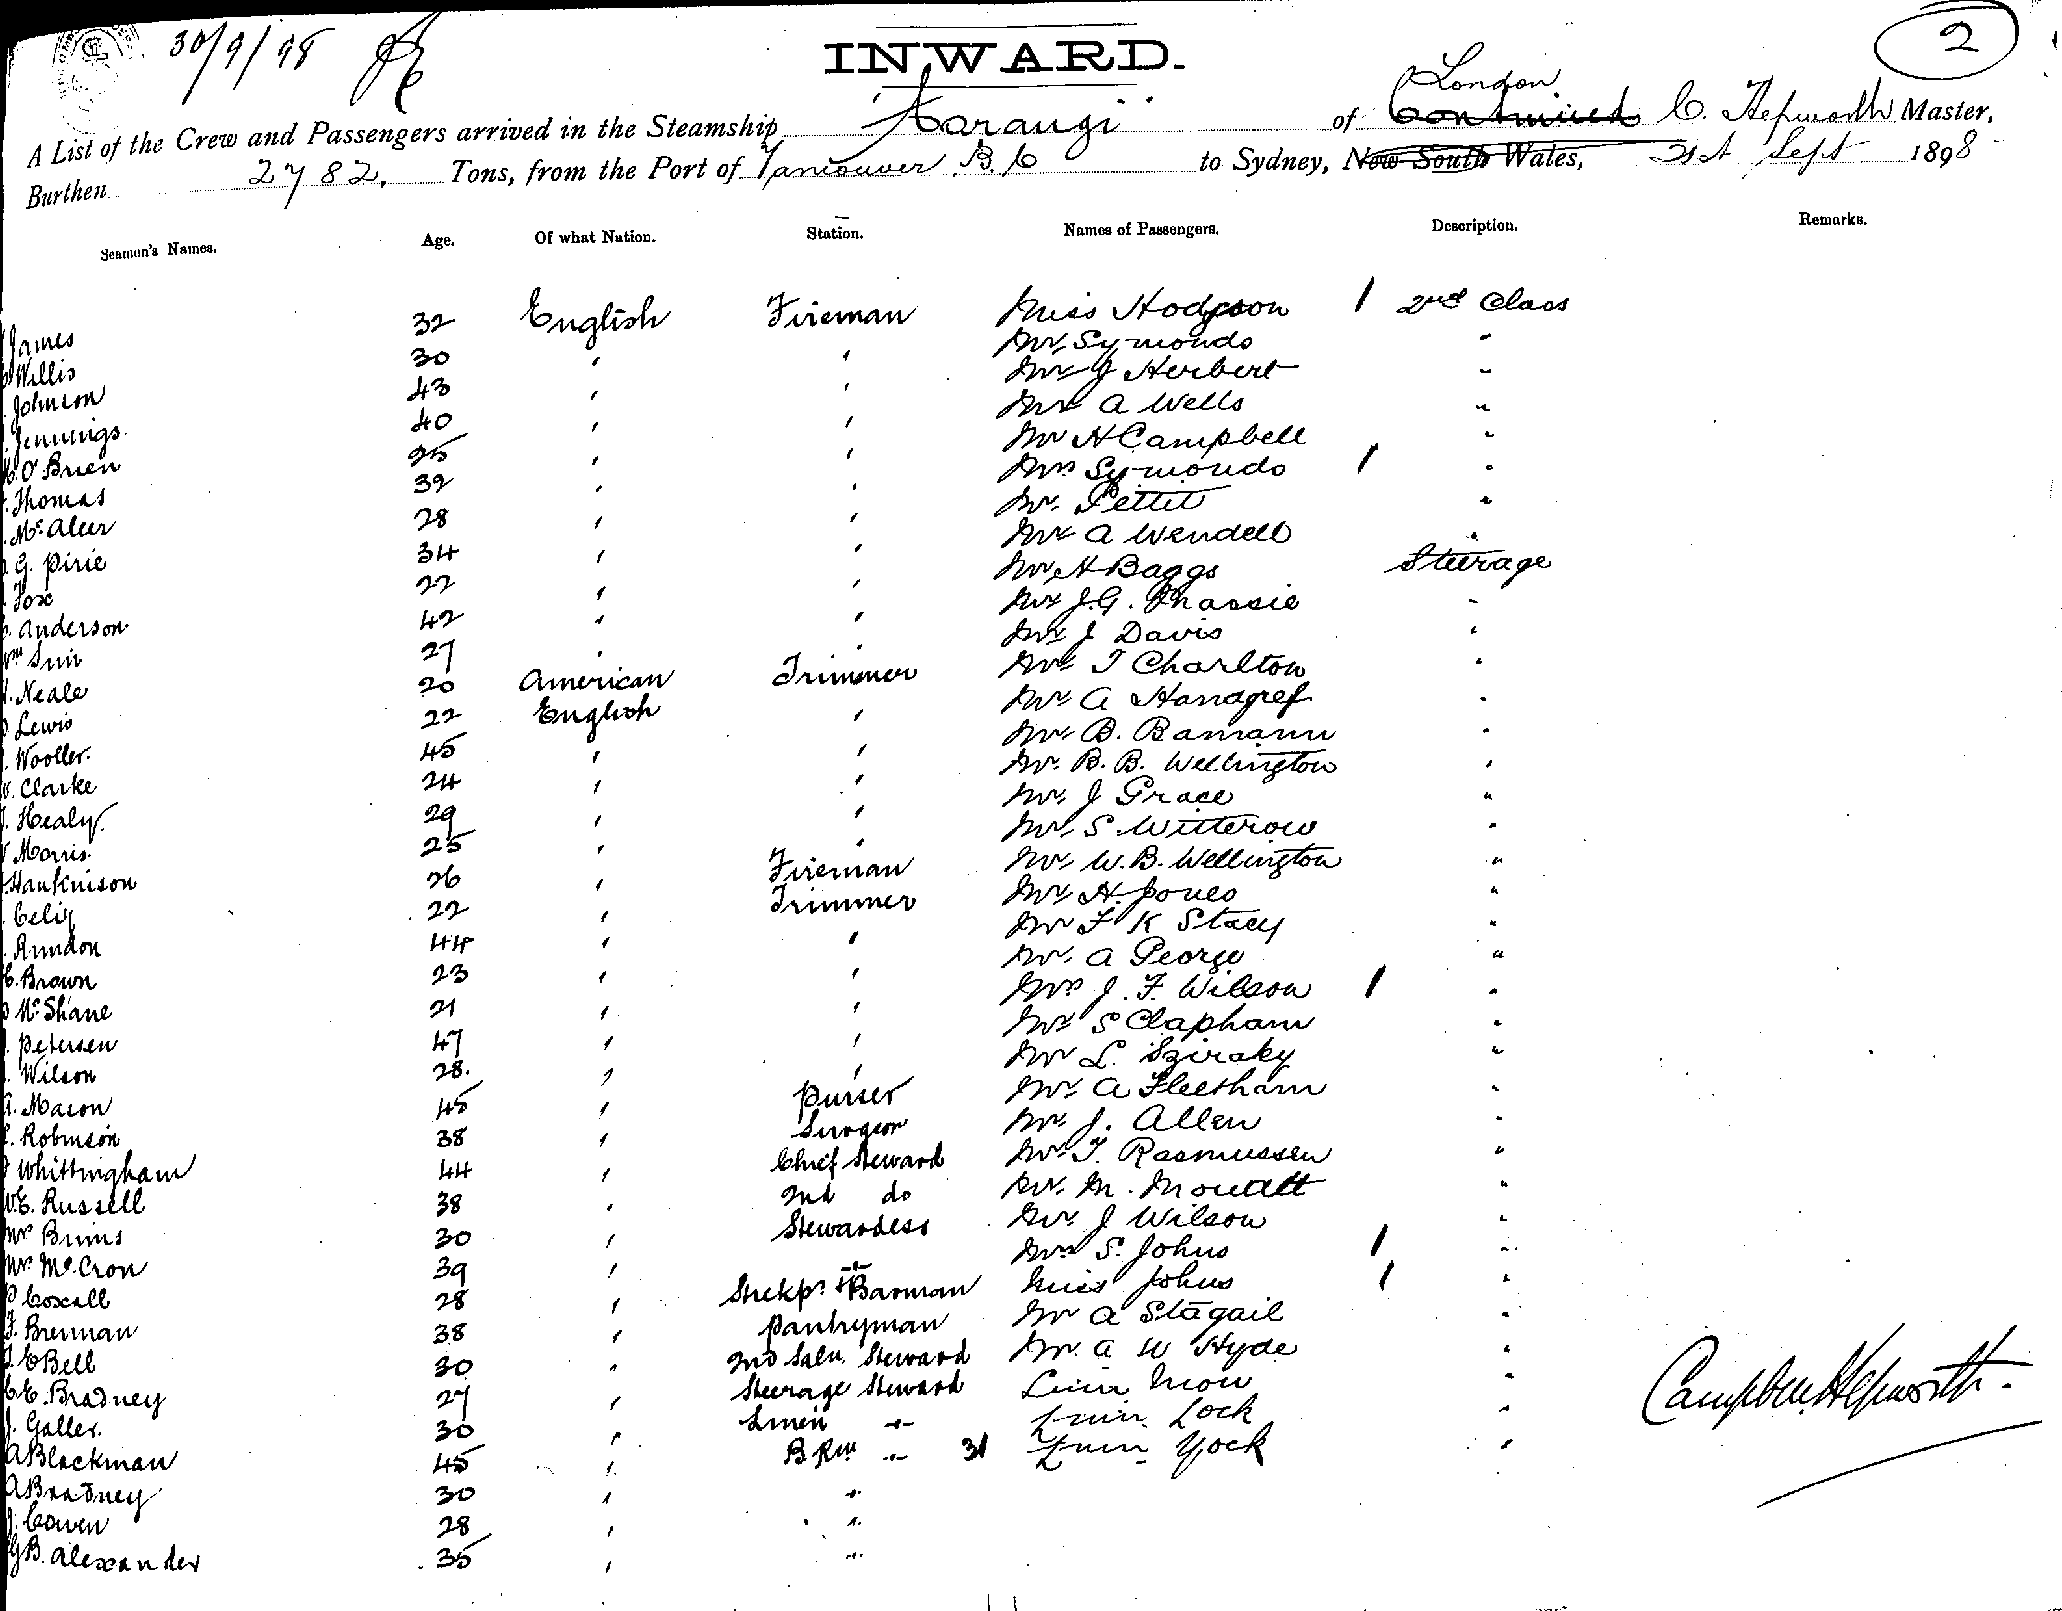 30/9/98
INWARD.
2
London
A List of the Crew and Passengers arrived in the Steamship Aorangi of Continued C. Hepworth Master,
Burthen 2782. Tons, from the Port of Vancouver B.C to Sydney, New South Wales, 21st Sept 1898
Seamen's Names. Age. Of what Nation. Station. Names of Passengers. Description. Remarks.
James 32 English Fireman Miss Hodgson 1 2nd Class
Willis 30 " " Mr Symonds "
Johnson 43 " " Mr J Herbert "
Jennings 40 " " Mr A Wells "
O'Brien 25 " " Mr H Campbell "
Thomas 32 " " Mrs Symonds 1 "
McAleer 28 " " Mr. Pettit "
G. Pirie 34 " " Mr A Wendell "
Fox 22 " " Mr H Baggs Steerage
Anderson 42 " " Mr J.G. Massie "
27 " " Mr J Davis "
Neale 20 American Trimmer Mr T Charlton "
Lewis 22 English " Mr A "
Wooller. 45 " " Mr B. Bamann "
Clarke 24 " " Mr. B. B. Wellington "
Healy. 29 " " Mr J Grace "
Morris. 25 " " Mr. S Witterow "
Hankinson 26 " Fireman Mr W.B. Wellington "
22 " Trimmer Mr H. Jones "
Rundon 44 " " Mr F K Stacy "
Brown 23 " " Mr. A George "
McShane 21 " " Mrs J. F. Wilson 1 "
Petersen 47 " " Mr S Clapham "
Wilson 28. " " Mr L. Sziraky "
A. Macon 45 " Purser Mr A Fleetham "
Robinson 38 " Surgeon Mr J. Allen "
Whittingham 44 " Chief Steward Mr T. Rasmussen "
Russell 38 " 2nd do Mr. M. Mouatt "
Mrs Binns 30 " Stewardess Mr J Wilson "
Mrs McCron 39 " " Mrs S. Johns 1 "
Coxall 28 " Strekpr + Barman Miss Johns 1 "
F. Brennan 38 " Pantryman Mr A Stagail "
Bell 30 " 2nd Saln. Steward Mr. A W Hyde "
Bradney 27 " Steerage Steward "
J. Galler. 30 " Linen " Lock "
A Blackman 45 " B Rm " 31 Yock "
A Bradney 30 " "
Cowen 28 " "
G B. Alexander 35 " "
Campbell Hepworth.